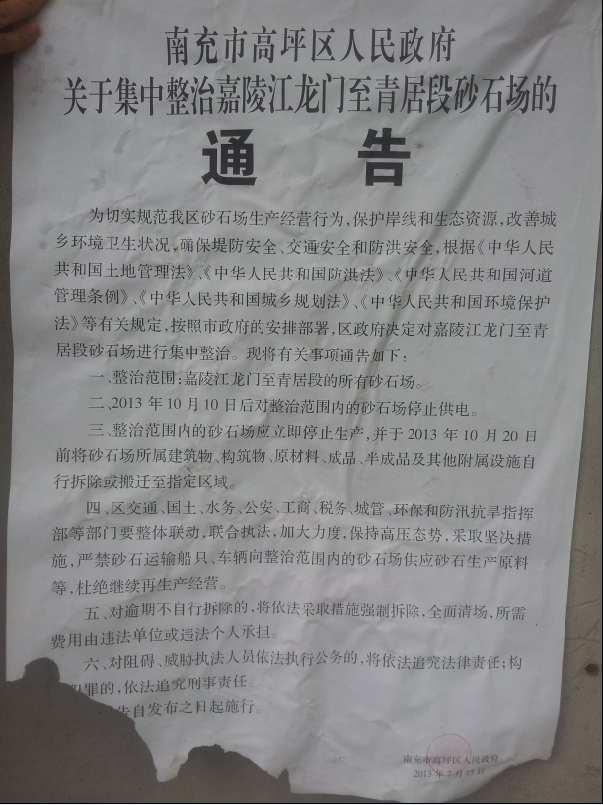 南充市高坪区人民政府
关于集中整治嘉陵江龙门至青居段砂石场的
通 告
为切实规范我区砂石场生产经营行为,保护岸线和生态资源,改善城
乡环境卫生状况,确保堤防安全、交通安全和防洪安全,根据《中华人民
共和国土地管理法》、《中华人民共和国防洪法》、《中华人民共和国河道
管理条例》、《中华人民共和国城乡规划法》、《中华人民共和国环境保护
法》等有关规定,按照市政府的安排部署,区政府决定对嘉陵江龙门至青
居段砂石场进行集中整治。现将有关事项通告如下:
一、整治范围:嘉陵江龙门至青居段的所有砂石场。
二、2013年10月10日后对整治范围内的砂石场停止供电。
三、整治范围内的砂石场应立即停止生产,并于2013年10月20日
前将砂石场所属建筑物、构筑物、原材料、成品、半成品及其他附属设施自
行拆除或搬迁至指定区域。
四、区交通、国土、水务、公安、工商、税务、城管、环保和防汛抗旱指挥
部等部门要整体联动,联合执法,加大力度,保持高压态势,采取坚决措
施,严禁砂石运输船只、车辆向整治范围内的砂石场供应砂石生产原料
等,杜绝继续再生产经营。
五、对逾期不自行拆除的,将依法采取措施强制拆除,全面清场,所需
费用由违法单位或违法个人承担。
六、对阻碍、威胁执法人员依法执行公务的,将依法追究法律责任;构
犯罪的,依法追究刑事责任。
告自发布之日起施行。
南充市高坪区人民政府
2013年 月15日